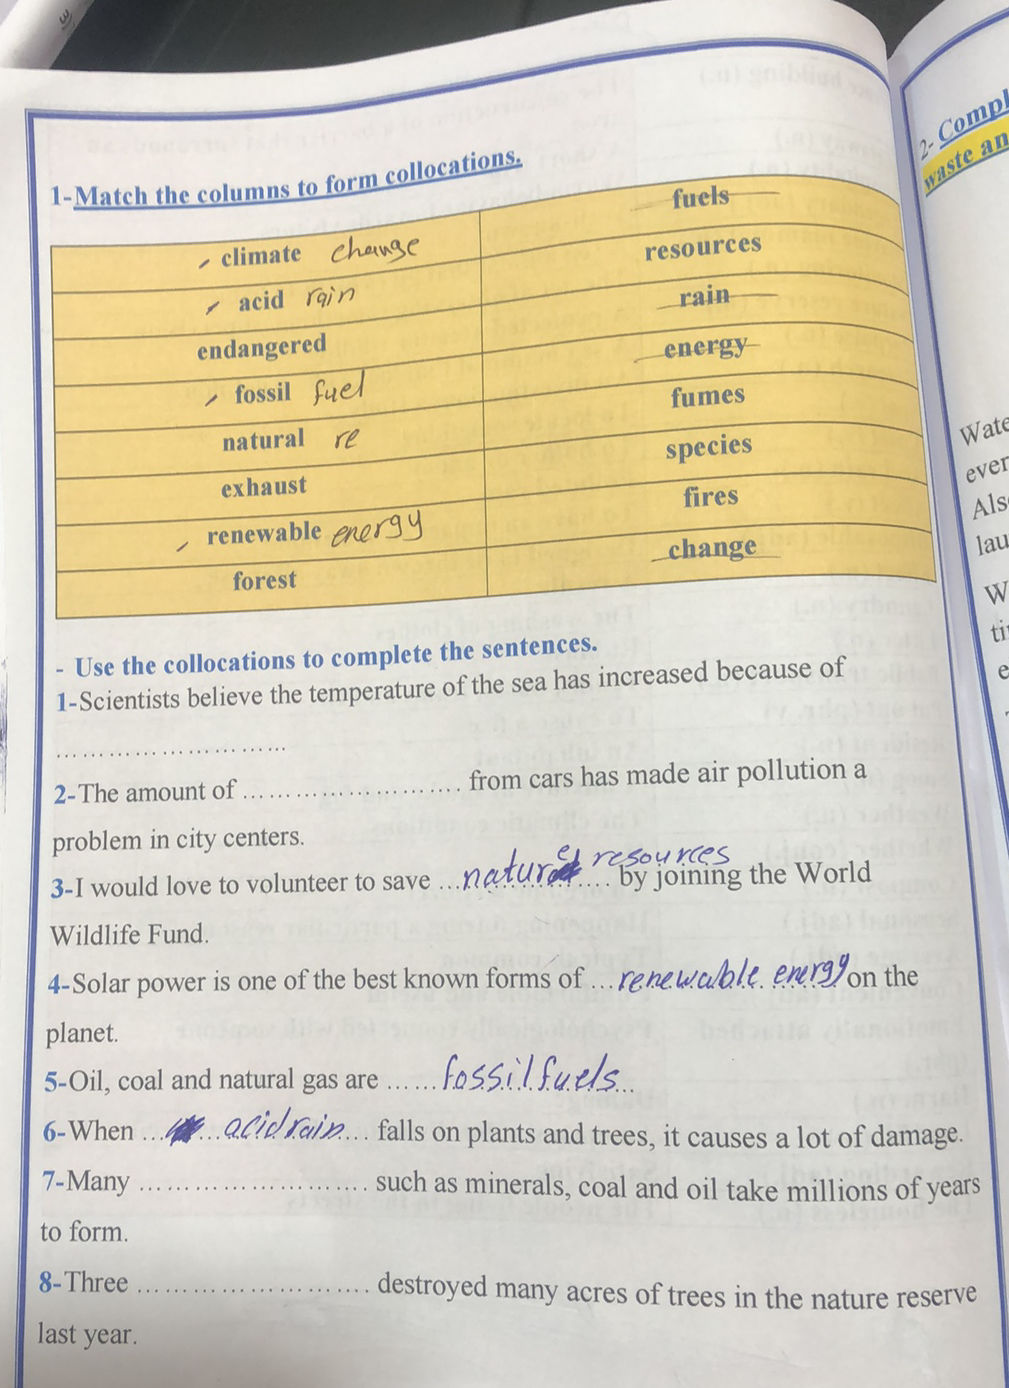 1-Match the columns to form collocations.
climate change fuels
acid rain resources
endangered rain
fossil fuel energy
natural re fumes
exhaust species
renewable energy fires
forest change
- Use the collocations to complete the sentences.
1-Scientists believe the temperature of the sea has increased because of
..............................
2-The amount of ............................ from cars has made air pollution a
problem in city centers.
3-I would love to volunteer to save ... resources .... by joining the World
Wildlife Fund.
4-Solar power is one of the best known forms of ... renewable energy on the
planet.
5-Oil, coal and natural gas are ...... fossil fuels ...
6-When ... acid rain ... falls on plants and trees, it causes a lot of damage.
7-Many .............................. such as minerals, coal and oil take millions of years
to form.
8-Three .............................. destroyed many acres of trees in the nature reserve
last year.
2- Compl
waste an
Wate
ever
Als
lau
W
ti
e